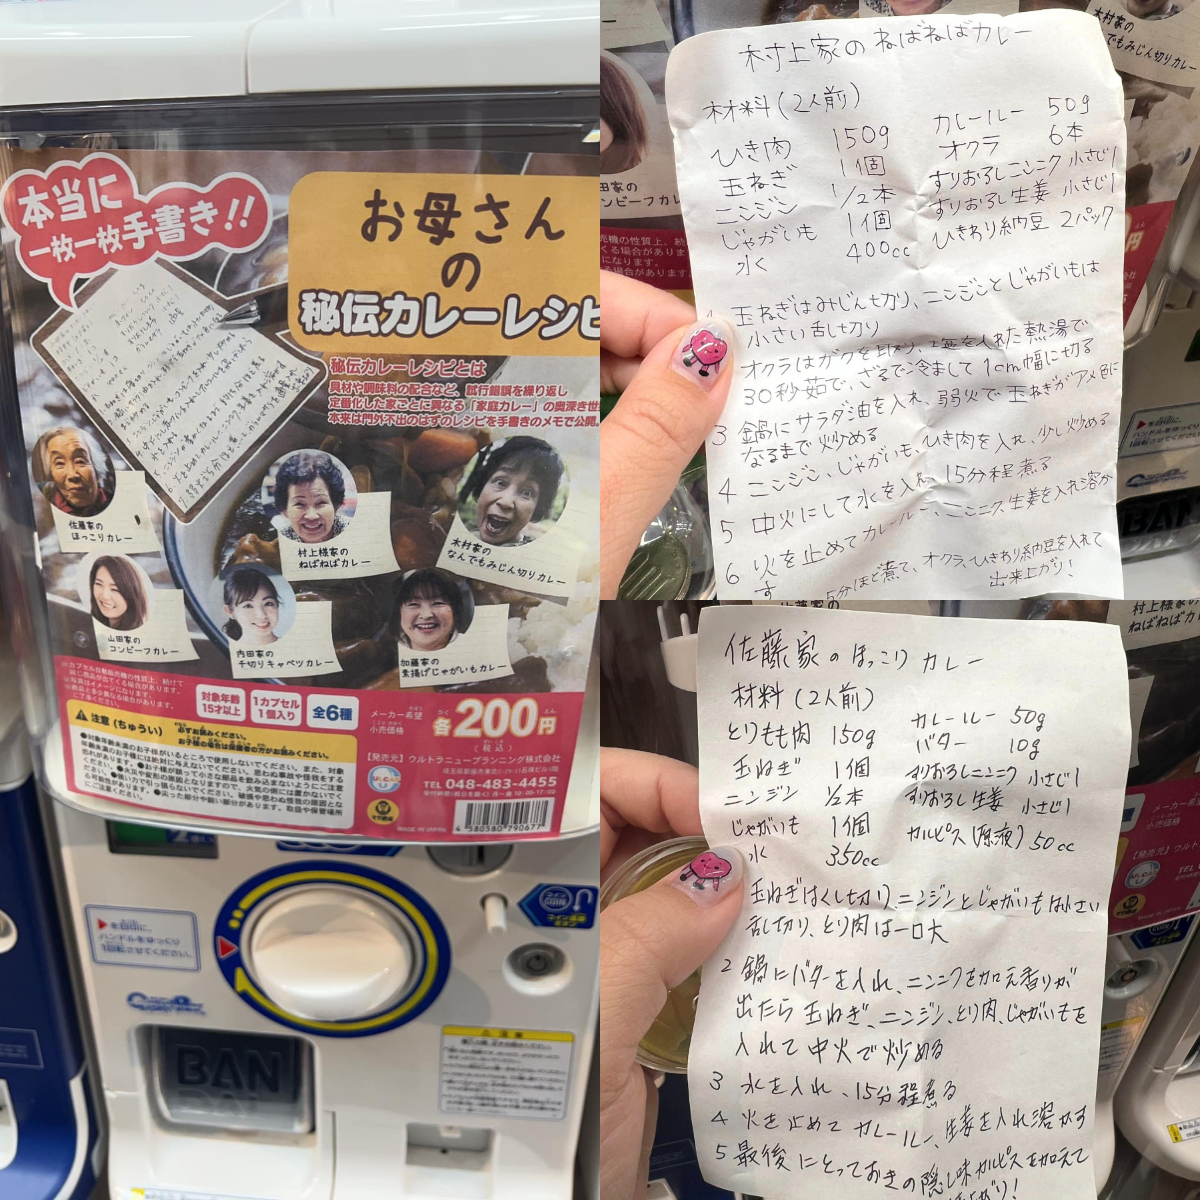 本当に
一枚一枚手書き!!
お母さん
の
秘伝カレーレシピ
秘伝カレーレシピとは
具材や調味料の配合など、試行錯誤を繰り返し
定番化した家ごとに異なる「家庭カレー」の奥深き世
本来は門外不出のはずのレシピを手書きのメモで公開。
佐藤家の
ほっこりカレー
村上様家の
ねばねばカレー
木村家の
なんでもみじん切りカレー
山田家の
コンビーフカレー
内田家の
千切りキャベツカレー
加藤家の
素揚げじゃがいもカレー
※カプセル自動販売機の性質上、続けて
同じ商品が出てくる場合があります。
※写真はイメージになります。
※商品と多少異なる場合があります。
ご了承ください。
対象年齢
15才以上
1カプセル
1個入り
全6種
メーカー希望
小売価格
各200円
(税込)
注意(ちゅうい)
必ずお読みください。
お子様の場合は保護者の方がお読みください。
【発売元】ウルトラニュープランニング株式会社
TEL 048-483-4455
MADE IN JAPAN
4 580580 790677
BAN
村上家のねばねばカレー
材料(2人前)
ひき肉 150g
玉ねぎ 1個
ニンジン 1/2本
じゃがいも 1個
水 400cc
カレールー 50g
オクラ 6本
すりおろしニンニク 小さじ1
すりおろし生姜 小さじ1
ひきわり納豆 2パック
玉ねぎはみじん切り、ニンジンとじゃがいもは
小さい乱切り
オクラはガクを取り、塩を入れた熱湯で
30秒茹で、ざるで冷まして1cm幅に切る
3 鍋にサラダ油を入れ、弱火で玉ねぎがアメ色に
なるまで炒める
4 ニンジン、じゃがいも、ひき肉を入れ、少し炒める
5 中火にして水を入れ、15分程煮る
6 火を止めてカレールー、ニンニク、生姜を入れ溶か
す
5分ほど煮て、オクラ、ひきわり納豆を入れて
出来上がり!
木村家の
でもみじん切りカレー
BAN
佐藤家のほっこりカレー
材料(2人前)
とりもも肉 150g
玉ねぎ 1個
ニンジン 1/2本
じゃがいも 1個
水 350cc
カレールー 50g
バター 10g
すりおろしニンニク 小さじ1
すりおろし生姜 小さじ1
カルピス(原液) 50cc
玉ねぎはくし切り、ニンジンとじゃがいもは小さい
乱切り、とり肉は一口大
2 鍋にバターを入れ、ニンニクを加え香りが
出たら玉ねぎ、ニンジン、とり肉、じゃがいもを
入れて中火で炒める
3 水を入れ、15分程煮る
4 火を止めてカレールー、生姜を入れ溶かす
5 最後にとっておきの隠し味カルピスを加えて
村上様家の